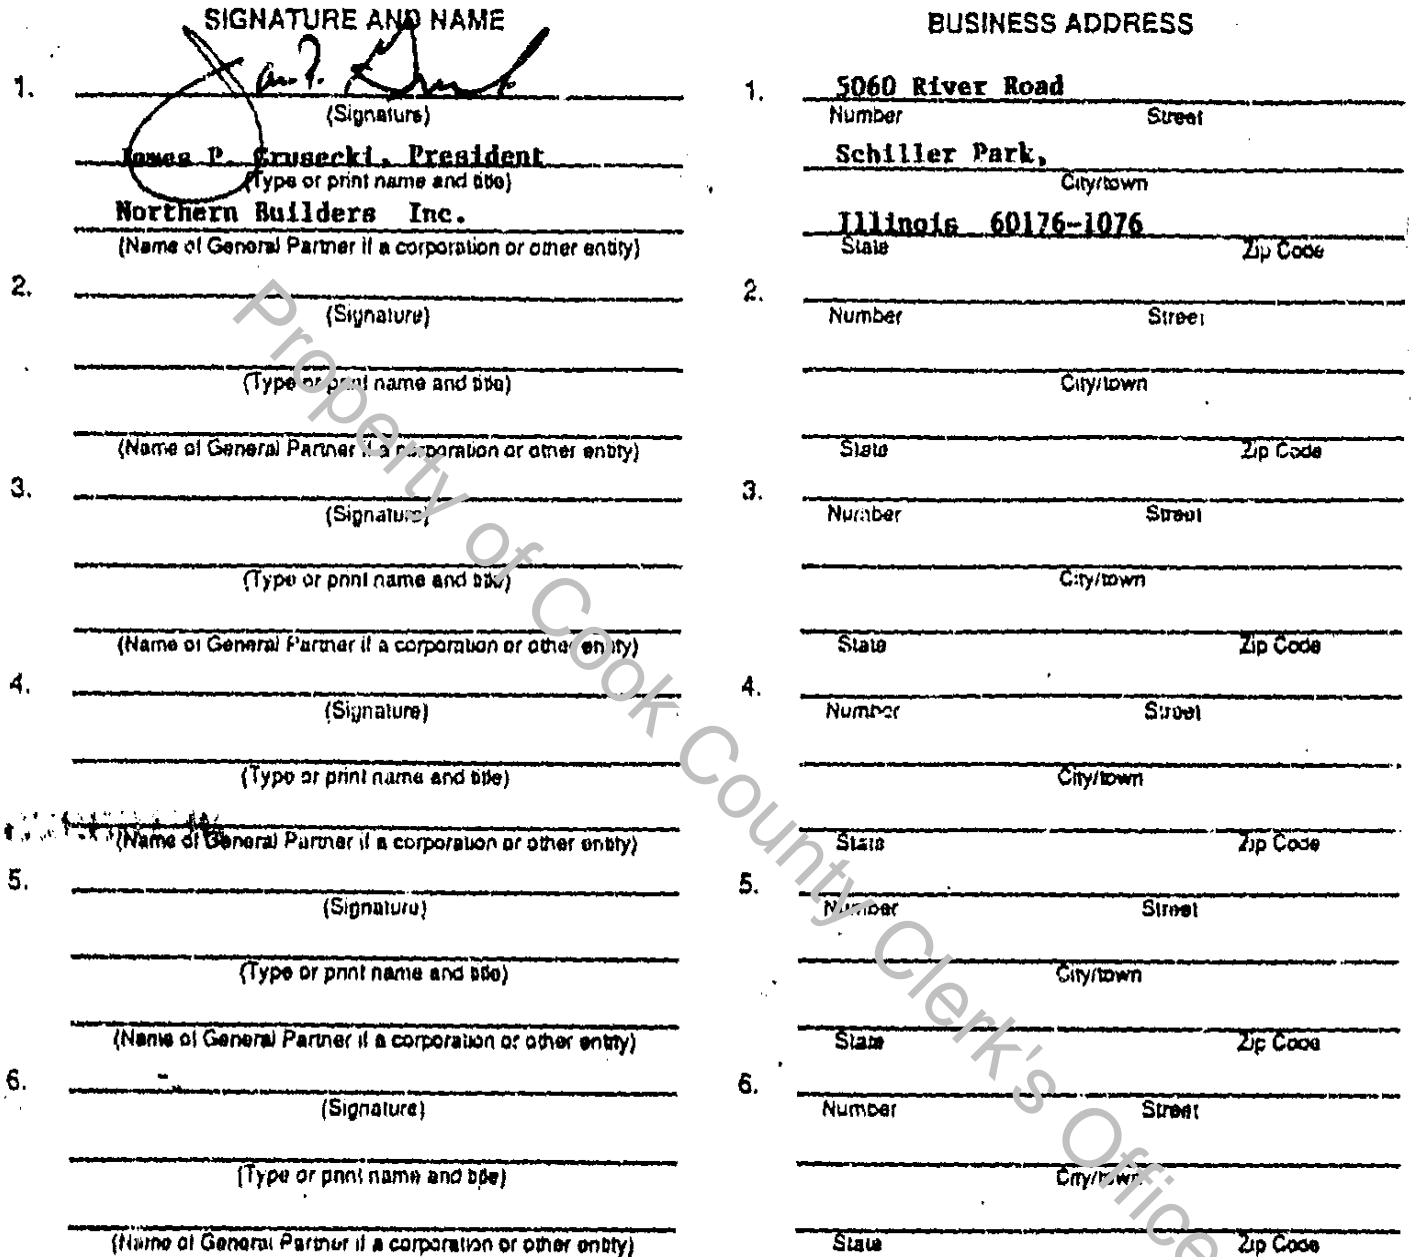 SIGNATURE AND NAME
1.
(Signature)
James P. Grusecki, President
(Type or print name and title)
Northern Builders Inc.
(Name of General Partner if a corporation or other entity)
2.
(Signature)
(Type or print name and title)
(Name of General Partner if a corporation or other entity)
3.
(Signature)
(Type or print name and title)
(Name of General Partner if a corporation or other entity)
4.
(Signature)
(Type or print name and title)
(Name of General Partner if a corporation or other entity)
5.
(Signature)
(Type or print name and title)
(Name of General Partner if a corporation or other entity)
6.
(Signature)
(Type or print name and title)
(Name of General Partner if a corporation or other entity)
BUSINESS ADDRESS
1. 5060 River Road
Number Street
Schiller Park,
City/town
Illinois 60176-1076
State Zip Code
2.
Number Street
City/town
State Zip Code
3.
Number Street
City/town
State Zip Code
4.
Number Street
City/town
State Zip Code
5.
Number Street
City/town
State Zip Code
6.
Number Street
City/town
State Zip Code
Property of Cook County Clerk's Office